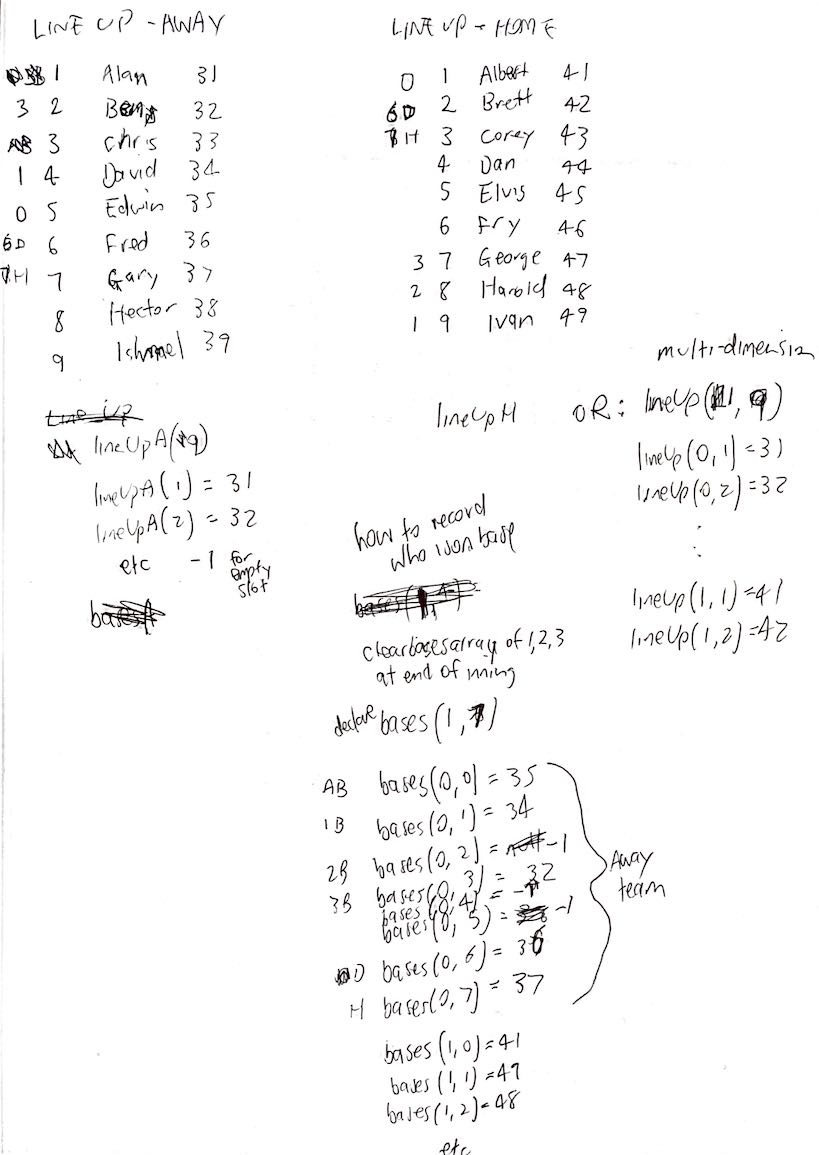 LINE UP - AWAY
1 Alan 31
3 2 Ben 32
3 Chris 33
1 4 David 34
0 5 Edwin 35
6D 6 Fred 36
7H 7 Gary 37
8 Hector 38
9 Ishmael 39
LINE UP - HOME
0 1 Albert 41
6D 2 Brett 42
7H 3 Corey 43
4 Dan 44
5 Elvis 45
6 Fry 46
3 7 George 47
2 8 Harold 48
1 9 Ivan 49
Line Up
lineUpA(9)
lineUpA(1) = 31
lineUpA(2) = 32
etc -1 for
empty
slot
bases
lineUpH
multi-dimension
OR: lineUp(1, 9)
lineUp(0,1) = 31
lineUp(0,2) = 32
:
lineup(1,1) = 41
lineUp(1,2) = 42
how to record
who is on base
bases(
clear bases array of 1,2,3
at end of inning
declare bases(1,7)
AB bases(0,0) = 35
1B bases(0,1) = 34
2B bases(0,2) = null -1
3B bases(0,3) = 32
bases(0,4) = -1
bases(0,5) = -1
D bases(0,6) = 36
H bases(0,7) = 37
Away
team
bases(1,0) = 41
bases(1,1) = 49
bases(1,2) = 48
etc